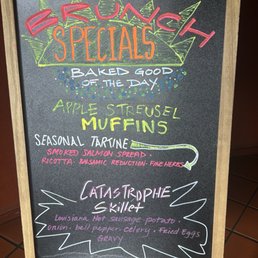 BRUNCH
SPECIALS
BAKED GOOD
OF THE DAY
APPLE STREUSEL
MUFFINS
SEASONAL TARTINE
SMOKED SALMON SPREAD.
RICOTTA. BALSAMIC REDUCTION. FINE HERBS
CATASTROPHE
Skillet
Louisiana Hot sausage potato.
onion. bell pepper. celery. Fried Eggs
GRAVY